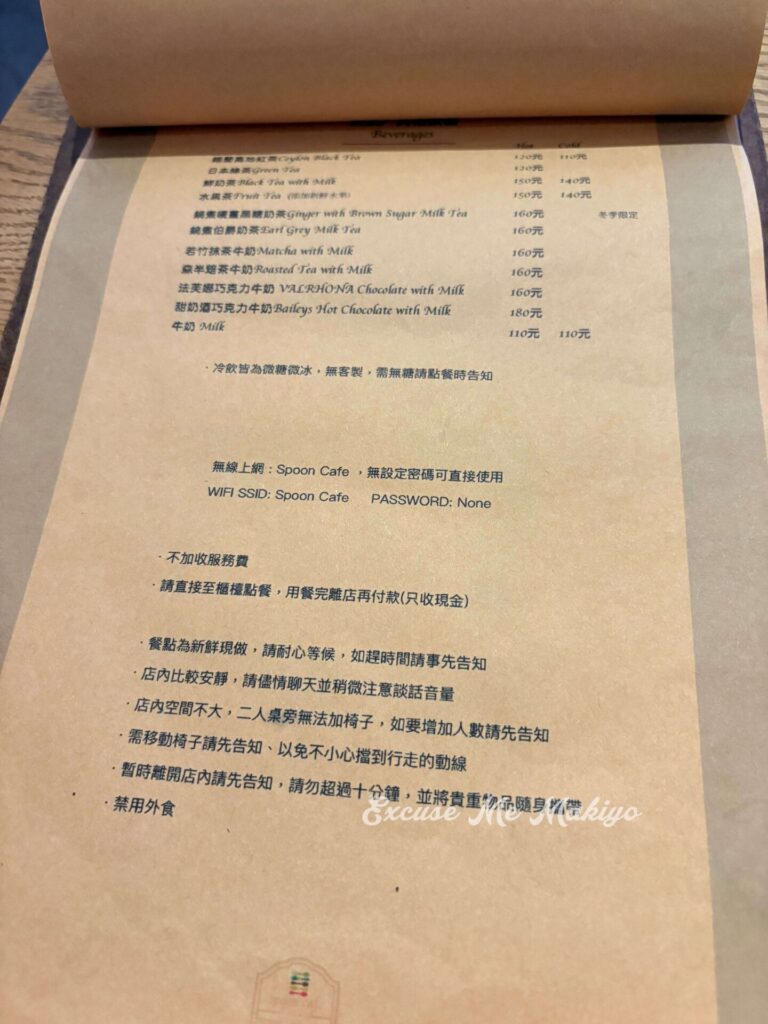 Beverages
Hot Cold
錫蘭高地紅茶Ceylon Black Tea 120元 110元
日本綠茶Green Tea 120元
鮮奶茶Black Tea with Milk 150元 140元
水果茶Fruit Tea (添加新鮮水果) 150元 140元
鍋煮暖薑黑糖奶茶Ginger with Brown Sugar Milk Tea 160元 冬季限定
鍋煮伯爵奶茶Earl Grey Milk Tea 160元
若竹抹茶牛奶Matcha with Milk 160元
森半焙茶牛奶Roasted Tea with Milk 160元
法芙娜巧克力牛奶 VALRHONA Chocolate with Milk 160元
甜奶酒巧克力牛奶Baileys Hot Chocolate with Milk 180元
牛奶 Milk 110元 110元
·冷飲皆為微糖微冰，無客製，需無糖請點餐時告知
無線上網：Spoon Cafe ，無設定密碼可直接使用
WIFI SSID: Spoon Cafe PASSWORD: None
·不加收服務費
·請直接至櫃檯點餐，用餐完離店再付款(只收現金)
·餐點為新鮮現做，請耐心等候，如趕時間請事先告知
·店內比較安靜，請儘情聊天並稍微注意談話音量
·店內空間不大，二人桌旁無法加椅子，如要增加人數請先告知
·需移動椅子請先告知、以免不小心擋到行走的動線
·暫時離開店內請先告知，請勿超過十分鐘，並將貴重物品隨身攜帶
·禁用外食
Excuse Me Makiyo